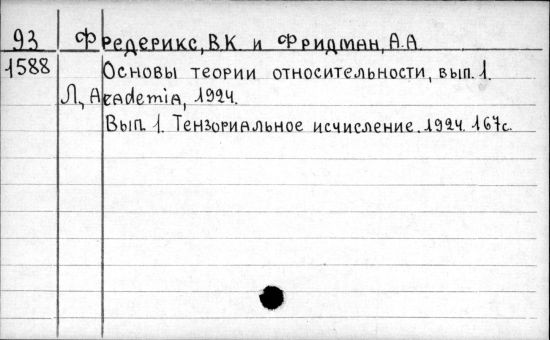 93 Фредерикс, В.К. и Фридман, А.А.
1588 Основы теории относительности, вып. 1.
Л, Academia, 1924.
Вып. 1. Тензориальное исчисление. 1924. 167с.